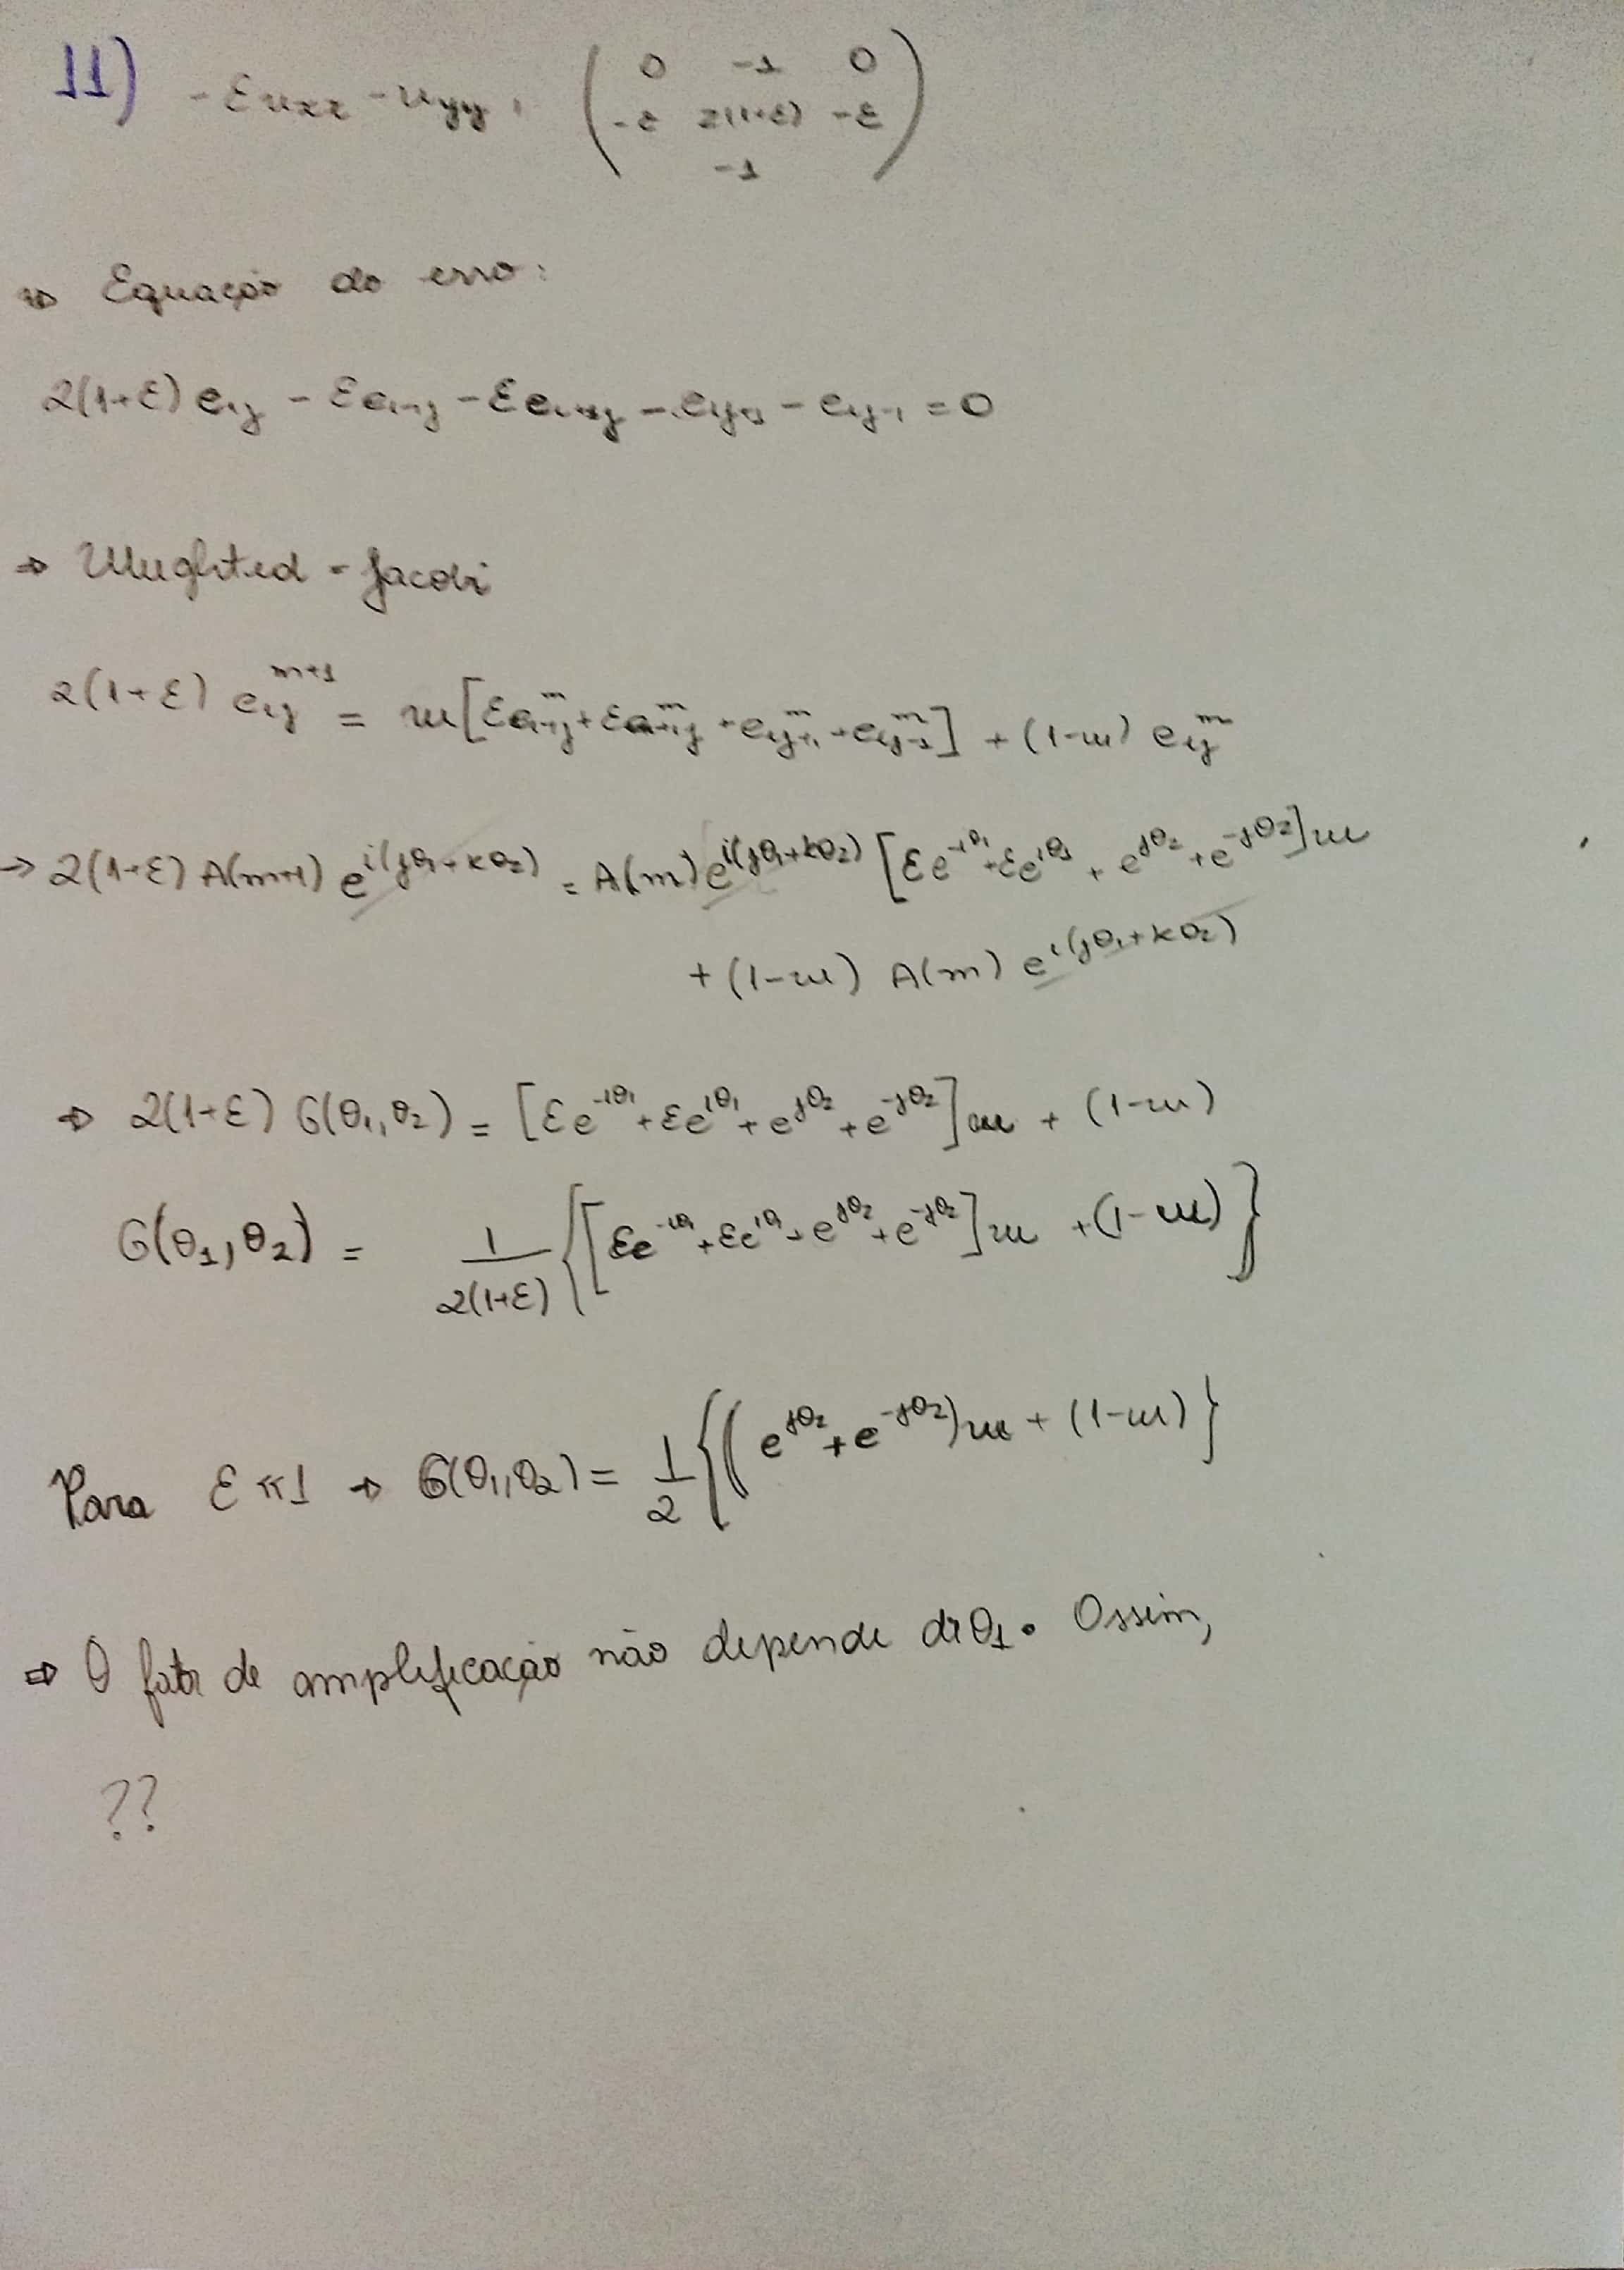 11) -εuxx - uyy, ( 0 -1 0
-ε 2(1+ε) -ε
-1 )
⇒ Equação do erro:
2(1+ε) eij - εei-1j - εei+1j - eij+1 - eij-1 = 0
⇒ Weighted - Jacobi
2(1+ε) eij^m+1 = w[εei-1j^m + εei+1j^m + eij+1^m + eij-1^m] + (1-w) eij^m
→ 2(1+ε) A(m+1) e^i(jθ1+kθ2) = A(m) e^i(jθ1+kθ2) [εe^-iθ1 + εe^iθ1 + e^jθ2 + e^-jθ2]w
+ (1-w) A(m) e^i(jθ1+kθ2)
⇒ 2(1+ε) G(θ1,θ2) = [εe^-iθ1 + εe^iθ1 + e^jθ2 + e^-jθ2]w + (1-w)
G(θ1,θ2) = 1/2(1+ε) {[εe^-iθ1 + εe^iθ1 + e^jθ2 + e^-jθ2]w + (1-w)}
Para ε<<1 → G(θ1,θ2) = 1/2 {(e^jθ2 + e^-jθ2)w + (1-w)}
⇒ O fator de amplificação não depende de θ1. Assim,
??